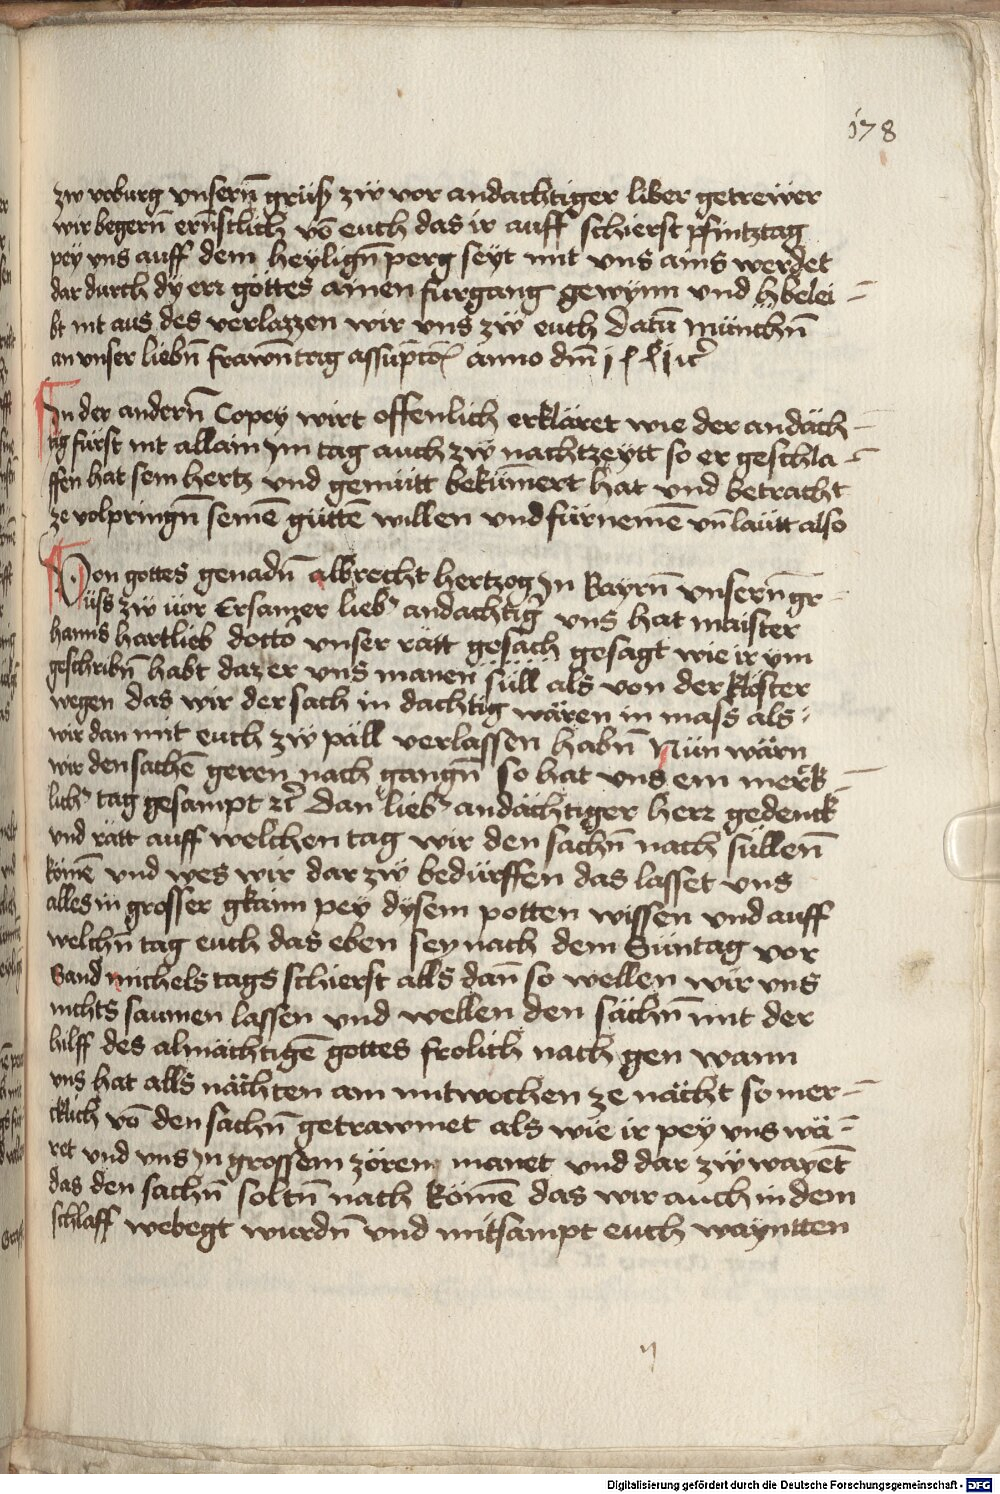 178
zw voburg vnsern̄ grüß zẅ vor andachtiger liber getrewer
wir begern̄ ernstlich vō euch das ir auff schierst pfintztag
pey vns auff dem heylign̄ perg seyt mit vns ains werdet
dar durch dy err göttes ainen furgang gewynn vnd hbelei-
bt nit aus des verlazzen wir vns zẅ euch Datū münchn̄
an vnser liebn̄ frawn̄ tag assūptō anno dm̄
In der andern̄ Copey wirt offenlich erkläret wie der andäch-
tig fürst nit allain Im tag auch zẅ nachtzeytt so er geschla-
ffen hat sein hertz vnd gemütt bekūmert hat vnd betracht
ze volpringn̄ seinē güttē willen vnd fürnemē vn̄ lautt also
Von gottes genadn̄ albrecht hertzog In Bayrn̄ vnsern̄ gr-
üss zẅ üor Ersamer lieb' andachtig' vns hat maister
hanns hartlieb doctor vnser rätt gesach gesagt wie ir ym
geschribn̄ habt daz er vns manen süll als von der klöster
wegen das wir der sach in dachtig wären in mass als
wir dan mit euch zẅ päll verlassen habn̄ Nün wärn
wir den sachē geren nach gangn̄ so hat vns ein merk-
lich' tag gesampt zc̄ Dan lieb' andächtiger herr gedenck
vnd rätt auff welchen tag wir den sachn̄ nach süllen̄
kömē vnd wes wir dar zẅ bedürffen das lasset vns
alles in grosser gkaim pey dysem potten wissen vnd auff
welchn̄ tag euch das eben sey nach dem Süntag vor
Sand michels tags schierst alls dan̄ so wellen wir vns
nichts saumen lassen vnd wellen den sächn̄ mit der
hilff des almächtigē gottes frolich nach gen wann
vns hat alls nächten am mitwochen ze nächt so mer-
cklich vō den sachn̄ getrawmet als wie ir pey vns wä-
ret vnd vns In grossem zören manet vnd dar zẅ wayēt
das den sachn̄ soltn̄ nach kömē das wir auch in dem
schlaff webegt wurdn̄ vnd mitsampt euch wayntten
Digitalisierung gefördert durch die Deutsche Forschungsgemeinschaft - DFG